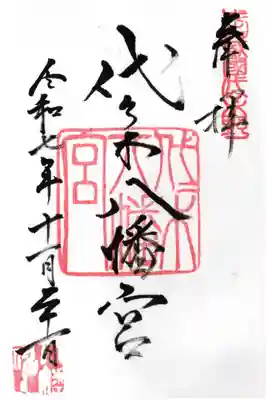 奉拝
代々木八幡宮
代々木八幡宮
令和七年十一月二十一日